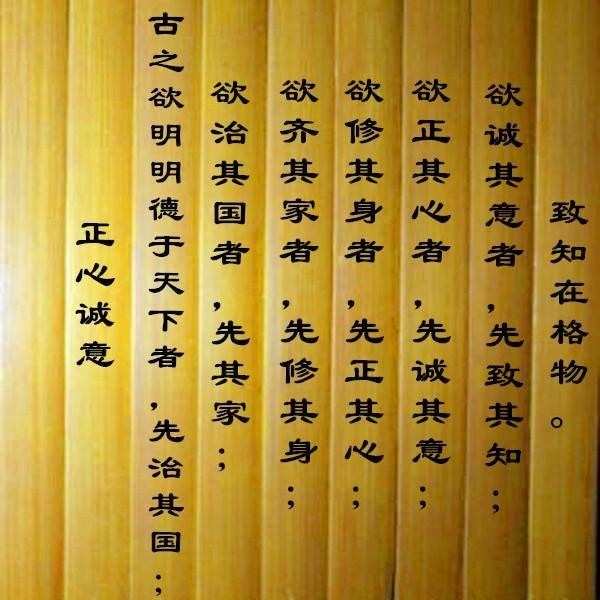 正心诚意
古之欲明明德于天下者，先治其国；
欲治其国者，先其家；
欲齐其家者，先修其身；
欲修其身者，先正其心；
欲正其心者，先诚其意；
欲诚其意者，先致其知；
致知在格物。